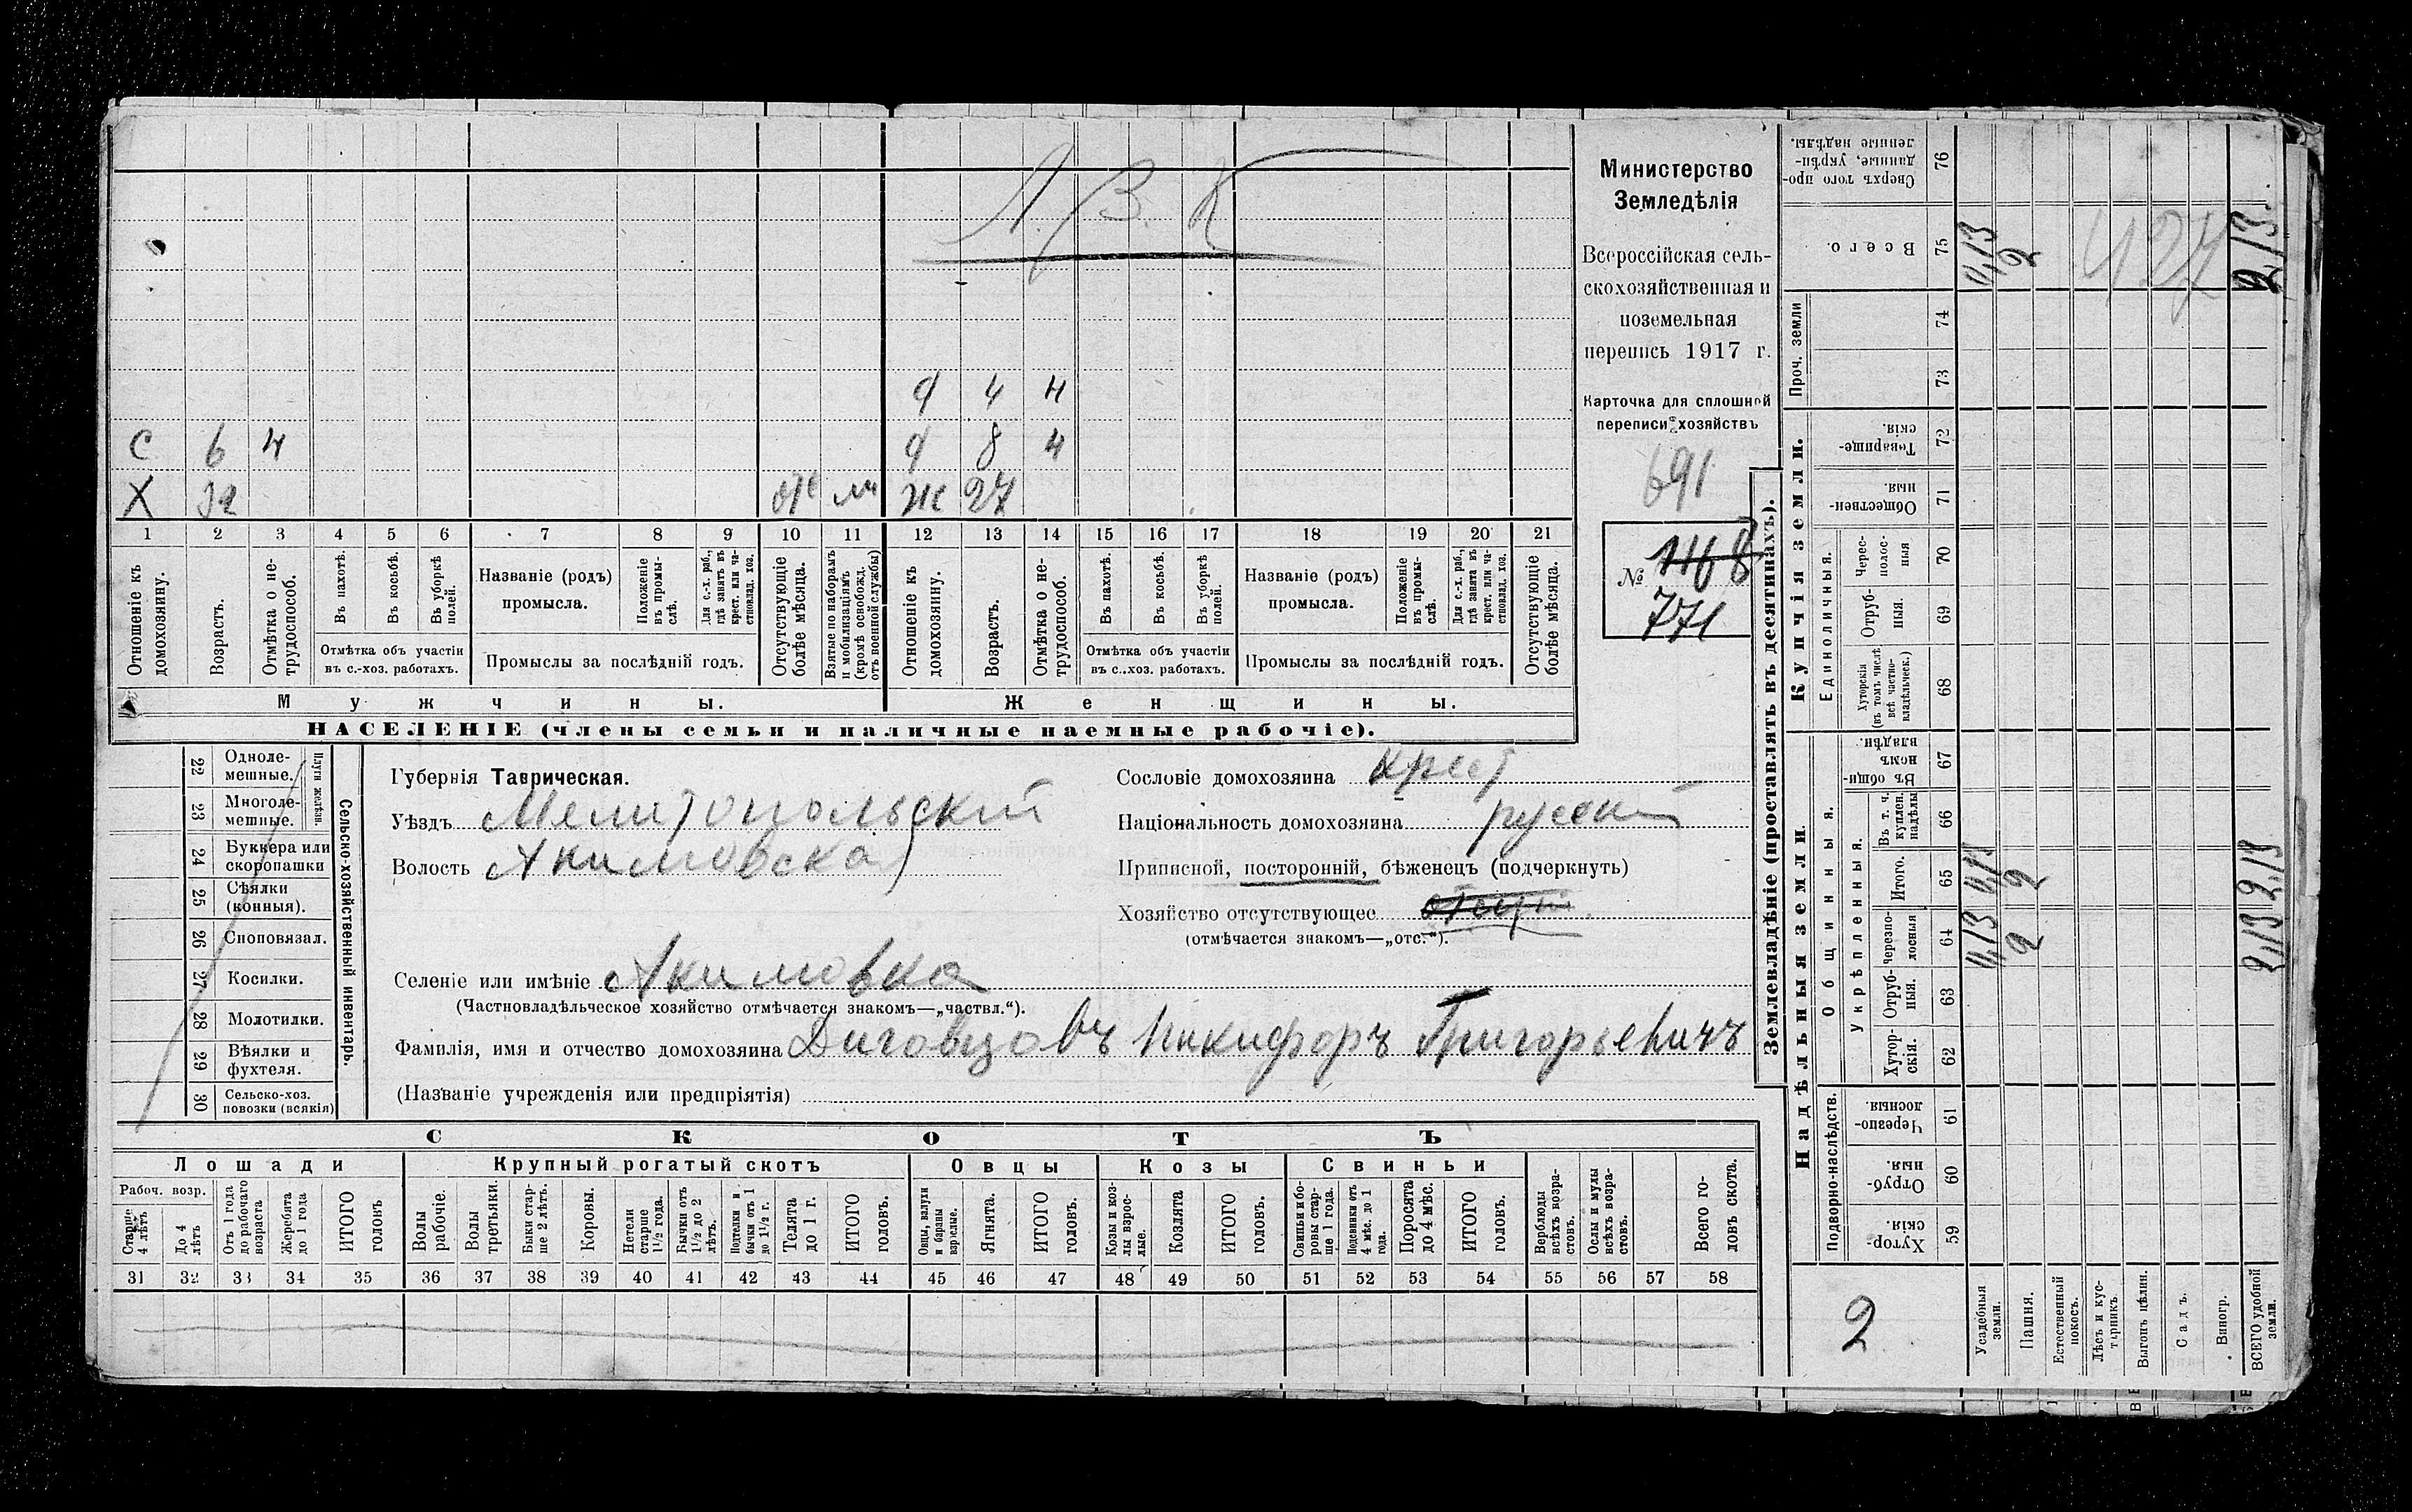 А. В. К
Министерство
Земледѣлія
Всероссійская сель-
скохозяйственная и
поземельная
перепись 1917 г.
Карточка для сплошной
переписи хозяйствъ
691
№ 1168
771
Д 4 Н
С 6 Н Д 8 Н
Х 32 отс м Ж 27
1 2 3 4 5 6 7 8 9 10 11 12 13 14 15 16 17 18 19 20 21
Отношеніе къ домохозяину.
Возрастъ.
Отмѣтка о не-трудоспособ.
Въ пахотѣ.
Въ косьбѣ.
Въ уборкѣ полей.
Отмѣтка объ участіи
въ с.-хоз. работахъ.
Названіе (родъ)
промысла.
Положеніе въ промы-слѣ.
Для с.-х. раб., гдѣ занятъ въ крест. или ча-стновлад. хоз.
Промыслы за послѣдній годъ.
Отсутствующіе болѣе мѣсяца.
Взятые по наборамъ и мобилизаціямъ (кромѣ освобожд. отъ военной службы)
Отношеніе къ домохозяину.
Возрастъ.
Отмѣтка о не-трудоспособ.
Въ пахотѣ.
Въ косьбѣ.
Въ уборкѣ полей.
Отмѣтка объ участіи
въ с.-хоз. работахъ.
Названіе (родъ)
промысла.
Положеніе въ промы-слѣ.
Для с.-х. раб., гдѣ занята въ крест. или ча-стновлад. хоз.
Промыслы за послѣдній годъ.
Отсутствующіе болѣе мѣсяца.
Мужчины. Женщины.
НАСЕЛЕНІЕ (члены семьи и наличные наемные рабочіе).
22 Одноле-мешные.
23 Многоле-мешные.
Плуги желѣзн.
24 Буккера или скоропашки
25 Сѣялки (конныя).
26 Сноповязал.
27 Косилки.
28 Молотилки.
29 Вѣялки и фухтеля.
30 Сельско-хоз. повозки (всякія)
Сельско-хозяйственный инвентарь.
Губернія Таврическая.
Уѣздъ Мелитопольскій
Волость Акимовская
Селеніе или имѣніе Акимовка
(Частновладѣльческое хозяйство отмѣчается знакомъ—„частвл.“).
Сословіе домохозяина крест
Національность домохозяина русскій
Приписной, посторонній, бѣженецъ (подчеркнуть)
Хозяйство отсутствующее отсут
(отмѣчается знакомъ—„отс.“).
Фамилія, имя и отчество домохозяина Диговцовъ Никифоръ Григорьевичъ
(Названіе учрежденія или предпріятія)
СКОТЪ
Лошади Крупный рогатый скотъ Овцы Козы Свиньи
Рабоч. возр.
Старше 4 лѣтъ
До 4 лѣтъ
Отъ 1 года до рабочаго возраста
Жеребята до 1 года
ИТОГО головъ
Волы рабочіе.
Волы третьяки.
Быки стар-ше 2 лѣтъ.
Коровы.
Нетели старше 1½ года.
Бычки отъ 1½ до 2 лѣтъ.
Подтелки и бычки отъ 1 до 1½ г.
Телята до 1 г.
ИТОГО головъ.
Овцы, валухи и бараны взрослые.
Ягнята.
ИТОГО головъ.
Козы и коз-лы взрос-лые.
Козлята
ИТОГО головъ.
Свиньи и бо-ровы стар-ше 1 года.
Подсвинки отъ 4 мѣс. до 1 года.
Поросята до 4 мѣс.
ИТОГО головъ.
Верблюды всѣхъ возра-стовъ.
Ослы и мулы всѣхъ возра-стовъ.
Всего го-ловъ скота.
31 32 33 34 35 36 37 38 39 40 41 42 43 44 45 46 47 48 49 50 51 52 53 54 55 56 57 58
Землевладѣніе (проставлять въ десятинахъ).
Надѣльныя земли.
Купчія земли.
Проч. земли
Подворно-наслѣдств.
Общинныя.
Укрѣпленныя.
Единоличныя.
Сверхъ того про-данные, укрѣп-ленные надѣлы. 76
Всего. 75 0,13 2 427 2,13.
74
73
Товарище-скія. 72
Обществен-ныя. 71
Черес-полос-ныя 70
Отруб-ныя. 69
Хуторскія (въ томъ числѣ всѣ частно-владѣльческ.) 68
Въ общи-номъ владѣн. 67
Въ т. ч. куплен. надѣлы 66
Итого. 65 0,13 2 2,13
Черезпо-лосныя 64 0,13 2 2,13
Отруб-ныя. 63
Хутор-скія. 62
Черезпо-лосныя 61
Отруб-ныя. 60
Хутор-скія. 59
2
Усадебныя земли.
Пашня.
Естественный покосъ.
Лѣсъ и кус-тарникъ.
Выгонъ цѣлин.
Садъ.
Виногр.
ВСЕГО удобной земли.